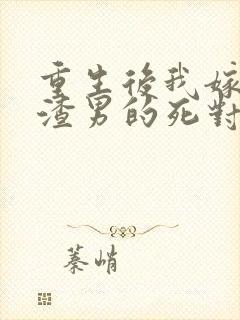 重生後我嫁
渣男的死對
蓁峭